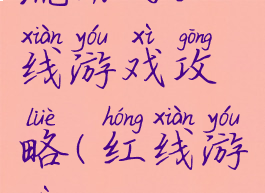 xiàn yóu xì gōng
线游戏攻
lüè hóng xiàn yóu
略(红线游